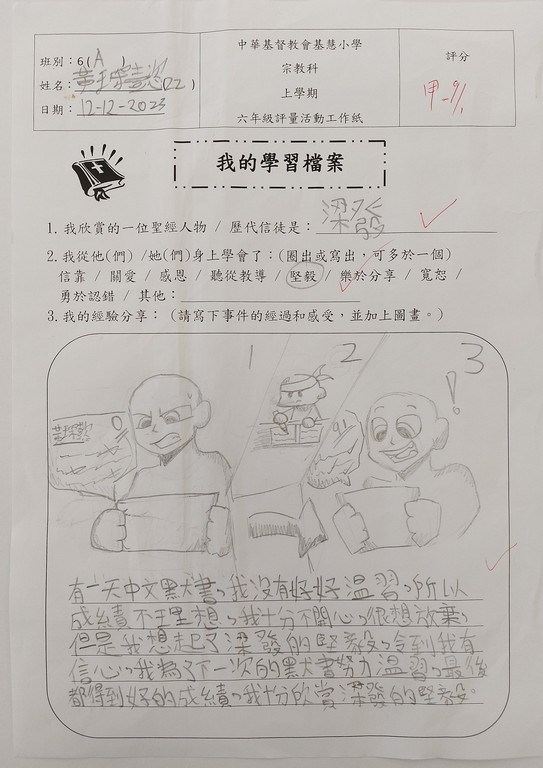 中華基督教會基慧小學
宗教科
上學期
六年級評量活動工作紙
班別：6(A)
姓名：黃(22)
日期：12-12-2023
評分
甲-91
我的學習檔案
1. 我欣賞的一位聖經人物 / 歷代信徒是：梁發
2. 我從他(們) /她(們)身上學會了：(圈出或寫出，可多於一個)
信靠 / 關愛 / 感恩 / 聽從教導 / 堅毅 / 樂於分享 / 寬恕 /
勇於認錯 / 其他：
3. 我的經驗分享：(請寫下事件的經過和感受，並加上圖畫。)
1 2 3
91
!
有一天中文默書，我沒有好好溫習，所以
成績不理想，我十分不開心，很想放棄，
但是我想起了梁發的堅毅，令到我有
信心，我為了下一次的默書努力溫習，最後
都得到好的成績，我十分欣賞梁發的堅毅。